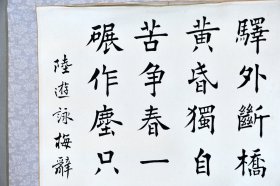 驛外斷橋
黃昏獨自
苦爭春一
碾作塵只
陸遊詠梅辭